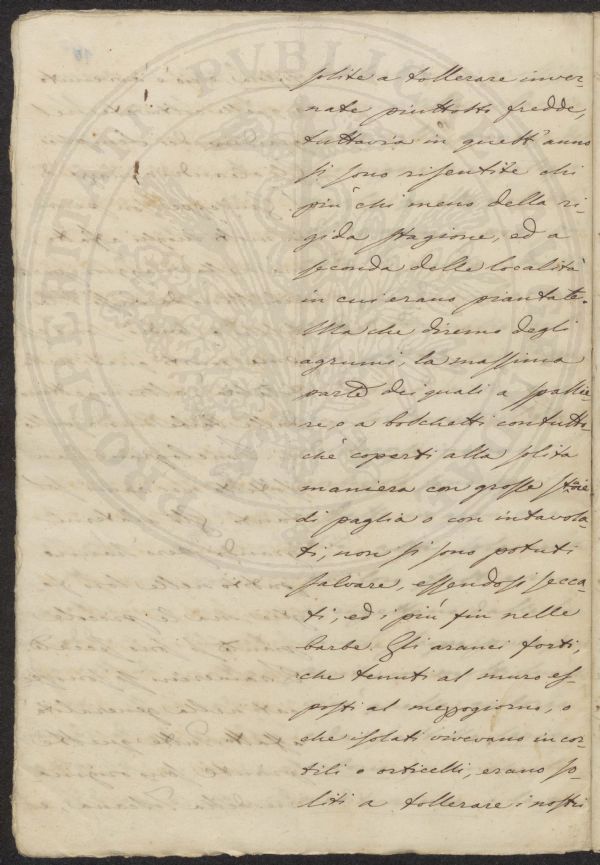 solite a tollerare inver-
nate piuttosto fredde,
tuttavia in quest'anno
si sono risentite chi
più chi meno della ri-
gida stagione, ed a
seconda delle località
in cui erano piantate.
Ma che diremo degli
agrumi, la massima
parte dei quali a spallie-
re, o a boschetti contutto-
chè coperti alla solita
maniera con grosse stoie
di paglia o con intavola-
ti, non si sono potuti
salvare, essendosi secca-
ti, ed i più fin nelle
barbe. Gli aranci forti,
che tenuti al muro es-
posti al mezzogiorno, o
che isolati vivevano in cor-
tili o orticelli, erano so-
liti a tollerare i nostri
PROSPERITATI PVBLICAE